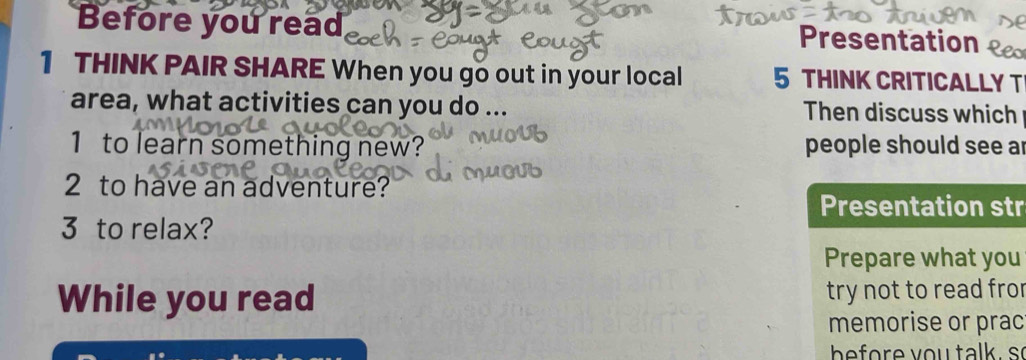 Before you read
1 THINK PAIR SHARE When you go out in your local
area, what activities can you do ...
imparare qualcosa di nuovo
1 to learn something new?
qualcosa di nuovo
2 to have an adventure?
3 to relax?
While you read
Presentation
5 THINK CRITICALLY T
Then discuss which
people should see ar
Presentation str
Prepare what you
try not to read fror
memorise or prac
before you talk, so